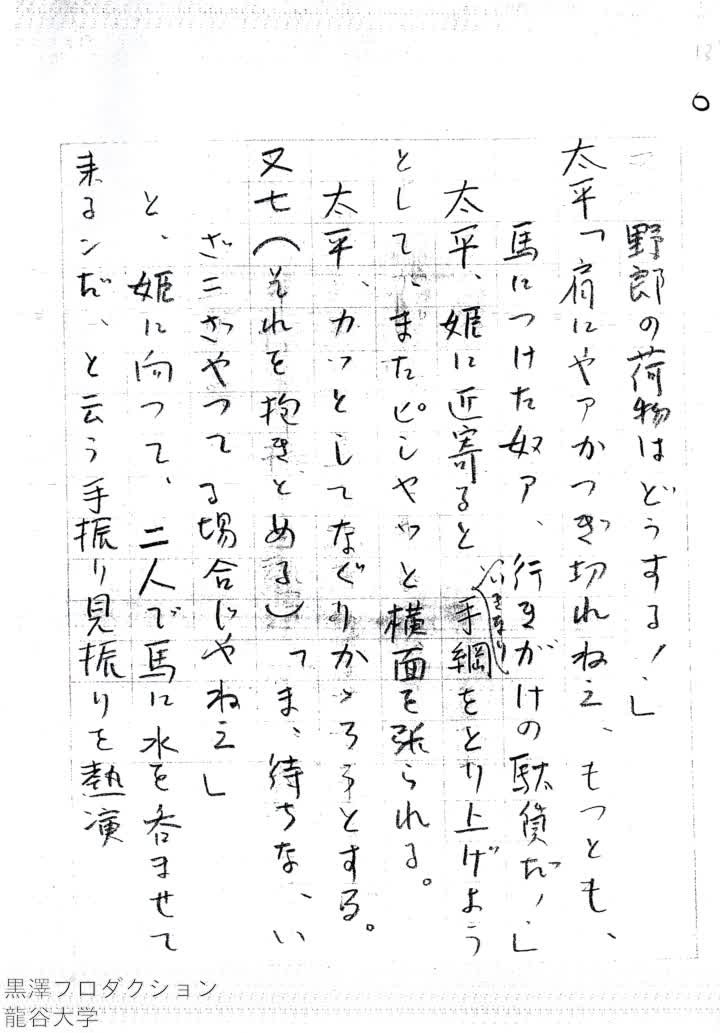 野郎の荷物はどうする！」
太平「肩にやァかつぎ切れねえ、もつとも、
馬につけた奴ァ、行きがけの駄賃だ！」
太平、姫に近寄ると
いきなり
手綱をとり上げよう
として、またピシヤッと横面を張られる。
太平、カッとしてなぐりかゝろうとする。
又七（それを抱きとめる）「ま、待ちな、い
ざこざやつてる場合じやねえ」
と、姫に向つて、二人で馬に水を呑ませて
来るンだ、と云う手振り見振りを熱演
黒澤プロダクション
龍谷大学